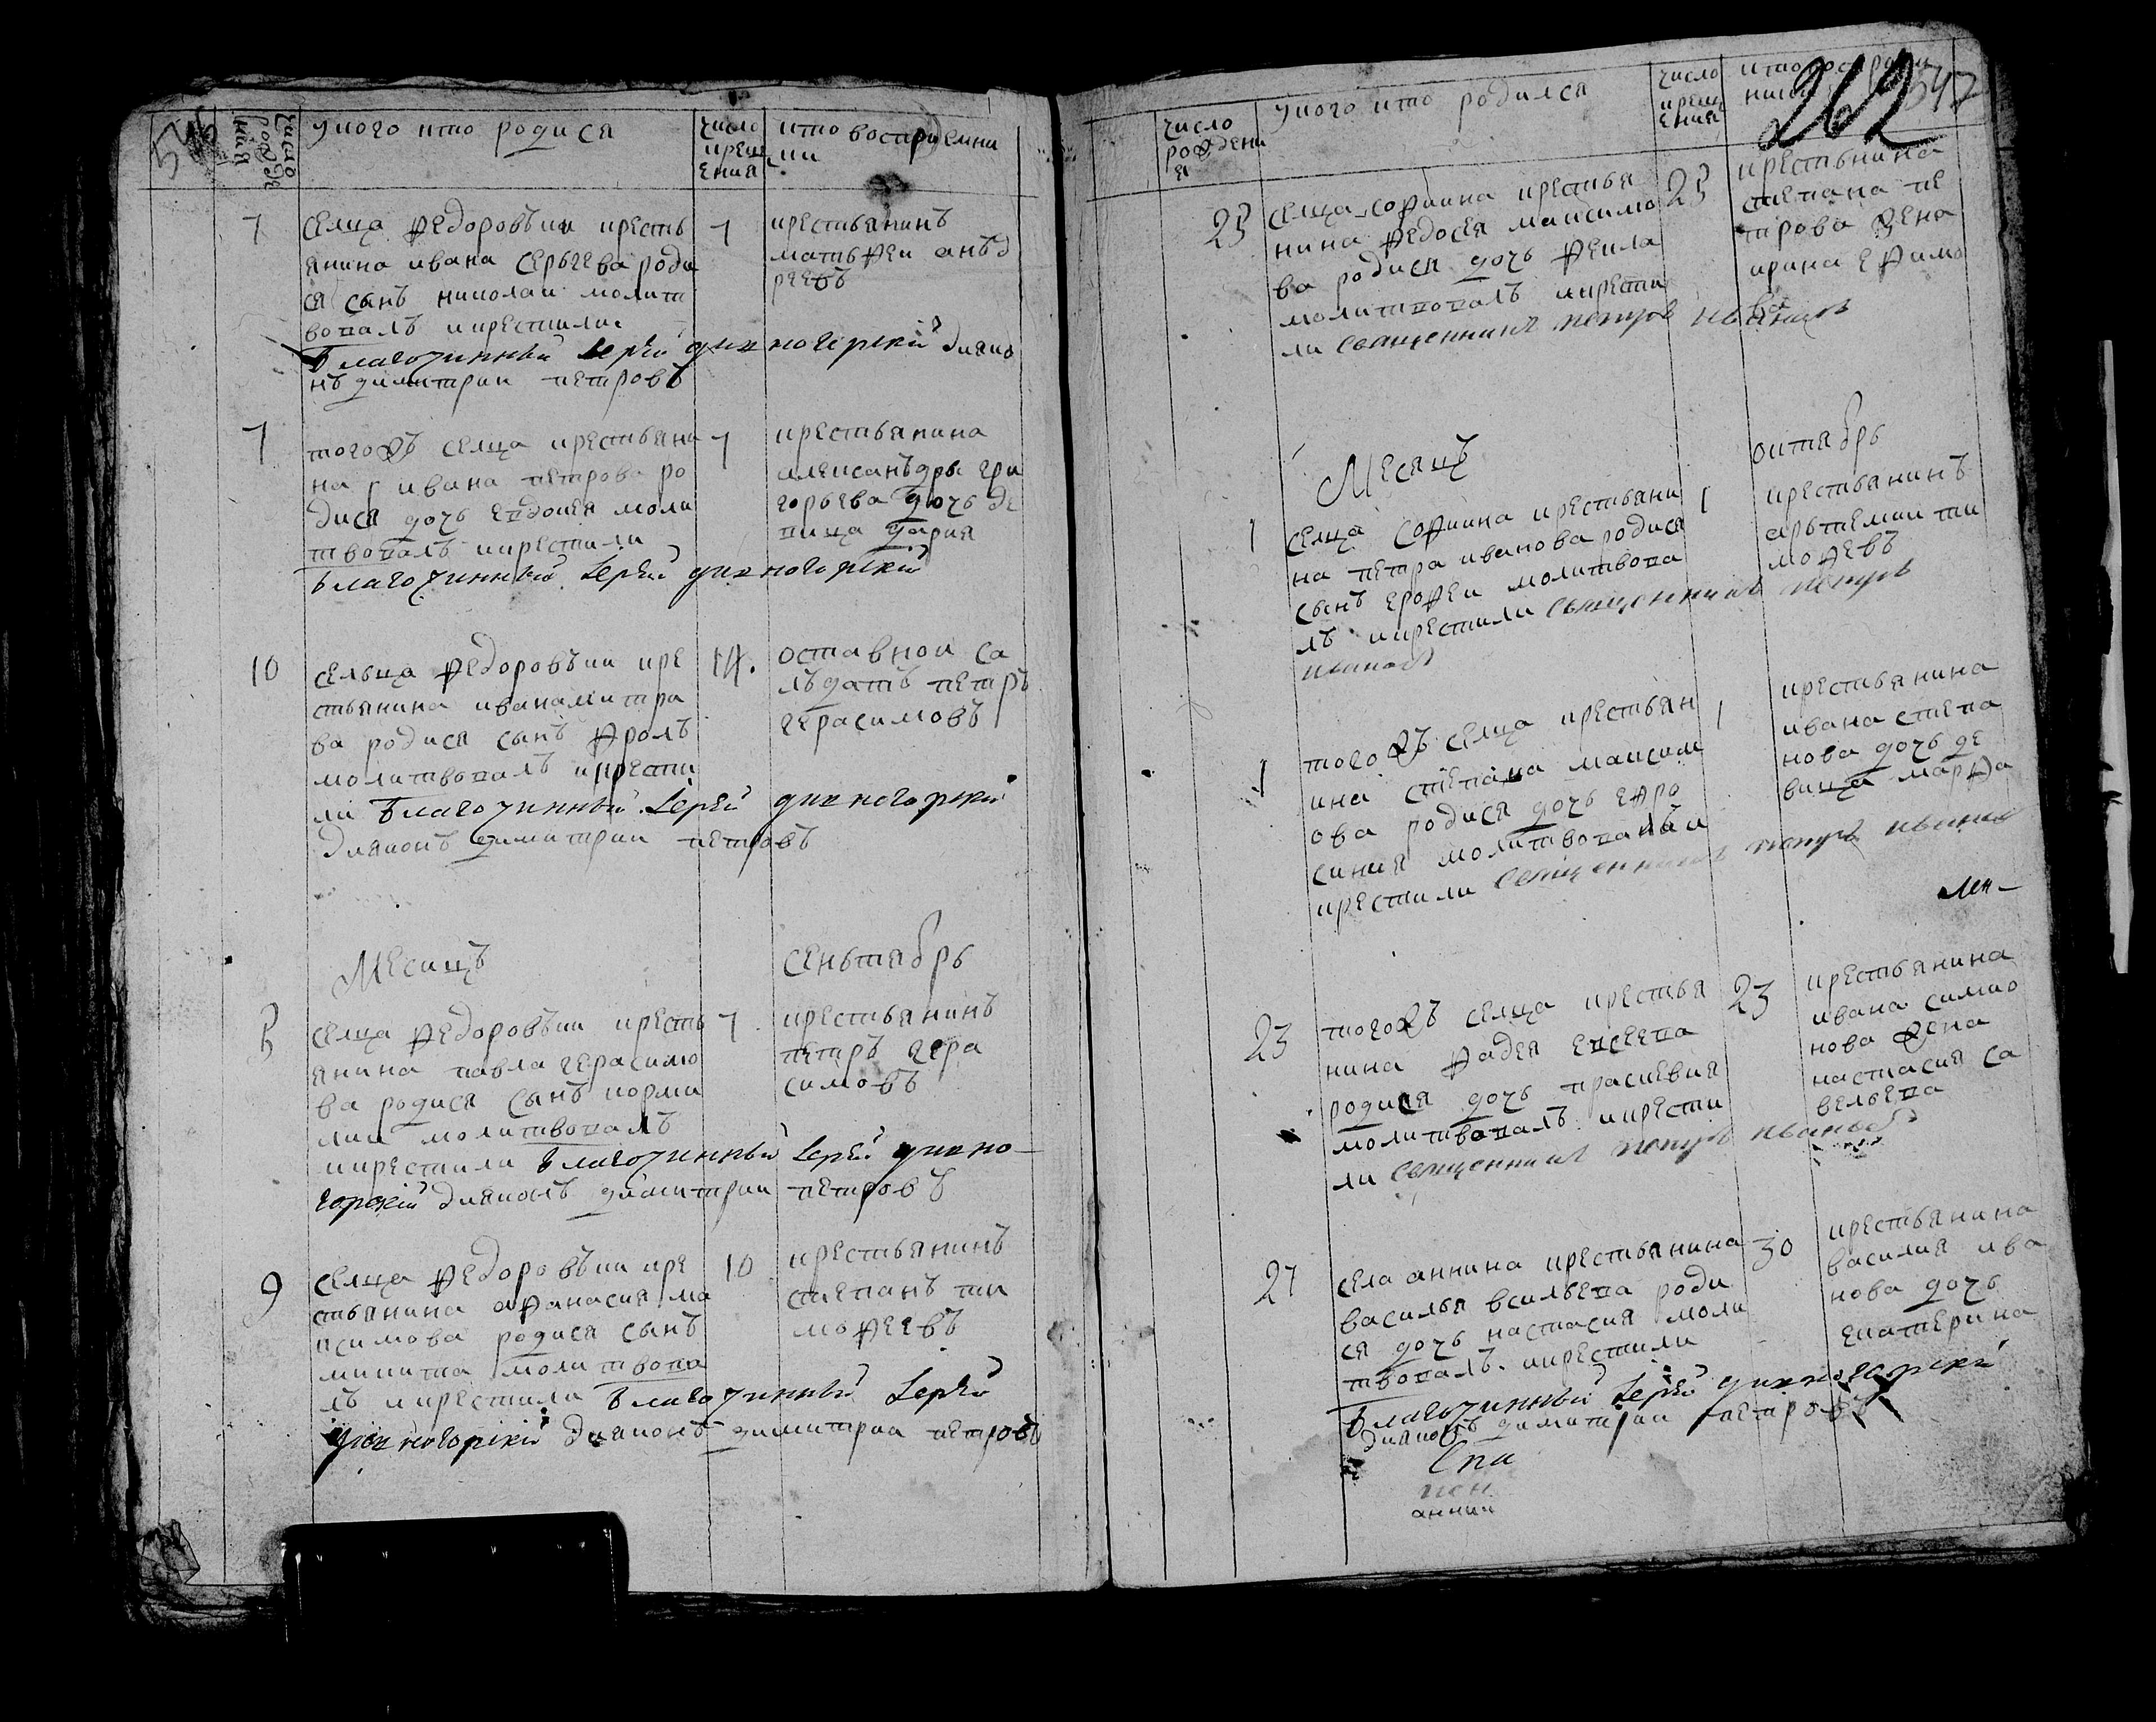 число рожде ния
у кого кто родися
число крещ ения
кто восприемни ки
7
селца федоровъки кресть
янина ивана сергеева роди
ся сынъ николаи молит
вовалъ и крестили
Благочинный Іерей Духногорскій диако
нъ димитрии петровъ
7
крестьянинъ
матьфеи анъд
реевъ
7
тогожъ селца крестьяни
на ивана петрова ро
дися дочь евдокея моли
твовалъ и крестили
Благочинный Іерей Духногорскій
7
крестьянина
алексанъдры гри
горьева дочь де
вица дария
10
сельца федоровъки кре
стьянина ивана митра
ва родися сынъ фролъ
молитвовалъ и крести
ли Благочинный Іерей Духногорскій
диаконъ димитрии петровъ
14.
оставнои са
лъдатъ петръ
герасимовъ
Месицъ сеньтябрь
5
селца федоровъки кресть
янина павла герасимо
ва родися сынъ корни
лии молитвовалъ
и крестили Благочинный Іерей Духно-
горскій диаконъ димитрии петровъ
7
крестьянинъ
петръ гера
симовъ
9
селца федоровъки кре
стьянина афанасия ма
ксимова родися сынъ
никита молитвова
лъ и крестили Благочинный Іерей
Духногорскій диаконъ димитрии петровъ
10
крестьянинъ
степанъ ти
мофеевъ
число рождени я
у кого кто родился
число крещ ения
262
547
25
селца софиина крестья
нина федосея максимо
ва родися дочь фекла
молитвовалъ и крести
ли священникъ петръ ивановъ
25
крестьнина
степана пе
трова жена
ирина ефимо
ва
Месяцъ октябрь
1
селца софиина крестьяни
на петра иванова родися
сынъ ерофеи молитвова
лъ и крестили священникъ петръ
ивановъ
1
крестьянинъ
арътемии ти
мофевъ
1
тогожъ селца крестьян
ина степана максим
ова родися дочь ефро
синия молитвовалъ и
крестили священникъ петръ ивановъ
1
крестьянина
ивана степа
нова дочь де
вица марфа
23
тогожъ селца крестья
нина фадея евсеева
родися дочь прасковия
молитвовалъ и крести
ли священникъ петръ ивановъ
23
крестьянина
ивана симио
нова жена
настасия са
вельева
27
села аннина крестьянина
василья всильева роди
ся дочь настасия моли
твовалъ и крестили
Благочинный Іерей Духногорскій
диаконъ димитрии петровъ
30
крестьянина
василия ива
нова дочь
екатерина